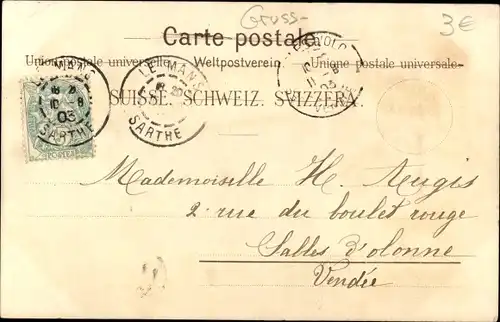 Gruss-
3€
Carte postale.
Union postale universelle. Weltpostverein. Unione postale universale.
SUISSE. SCHWEIZ. SVIZZERA.
LE MANS
10 -8
03
SARTHE
LE MANS
SARTHE
03
POSTES
Mademoiselle H. Augis
2 rue du boulet rouge
Salles d'olonne
Vendée